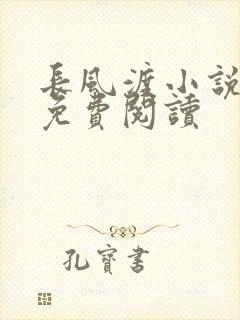 長風渡小說
免費閱讀
孔寶書